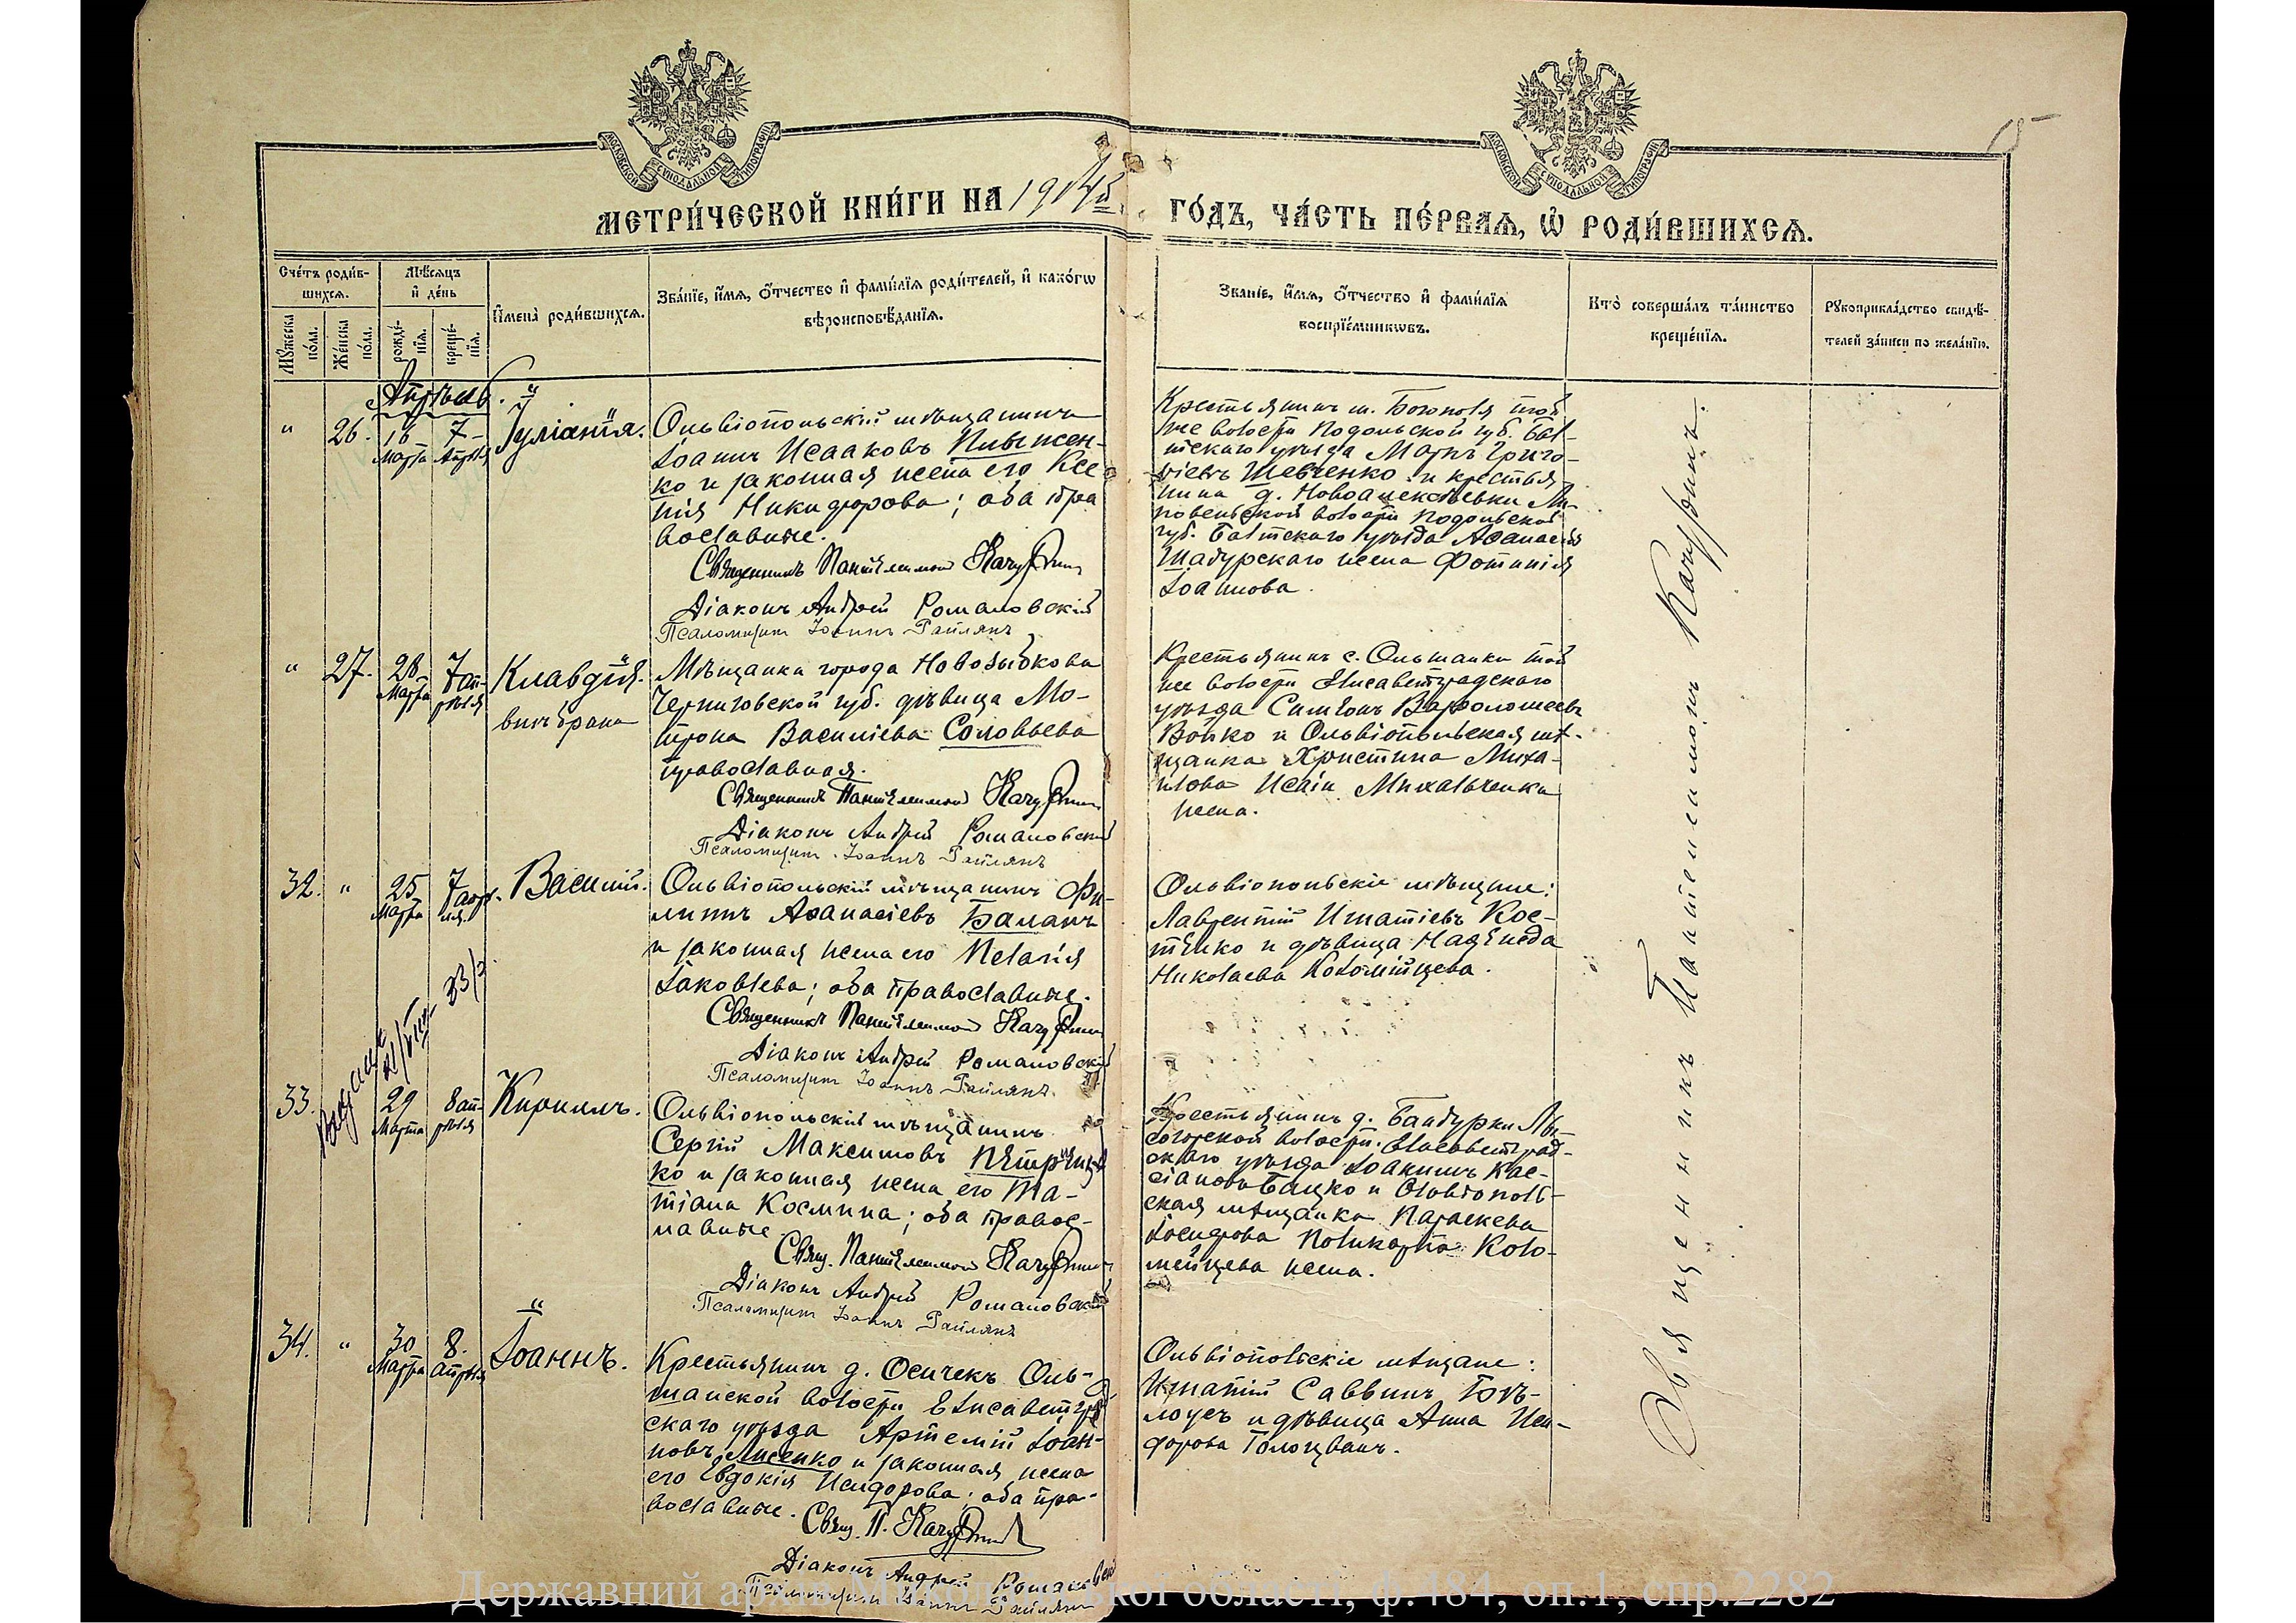 15
МОСКОВСКОЙ СѴНОДАЛЬНОЙ ТИПОГРАФІИ
МОСКОВСКОЙ СѴНОДАЛЬНОЙ ТИПОГРАФІИ
МЕТРИ́ЧЕСКОЙ КНИ́ГИ НА 1914й
ГО́ДЪ, ЧА́СТЬ ПЕ́РВАѦ, Ѽ РОДИ́ВШИХСѦ.
Сче́тъ роди́в-
шихсѧ.
Мѣ́сѧцъ
и҆ де́нь
Мꙋ́жеска
по́ла.
Же́нска
по́ла.
рожде́-
нїѧ.
креще́-
нїѧ.
И҆мена̀ роди́вшихсѧ.
Зва́нїе, и҆́мѧ, ѻ҆́тчество и҆ фами́лїѧ роди́телей, и҆ како́гѡ
вѣроисповѣ́данїѧ.
Зва́нїе, и҆́мѧ, ѻ҆́тчество и҆ фами́лїѧ
воспрїе́мникѡвъ.
Кто̀ соверша́лъ та́инство
креще́нїѧ.
Рꙋкоприкла́дство свидѣ́-
телей за́писи по жела́нїю.
Апрѣль.
" 26. 16 Марта 7 Апрѣля Іуліанія.
Ольвіопольскій мѣщанинъ
Іоаннъ Исааковъ Пивымен-
ко и законная жена его Ксе-
нія Никифорова; оба пра
вославные.
Священникъ Пантелеимон
Діаконъ Андрей Романовскій
Псаломщикъ Іоаннъ Гайлянъ
Крестьянинъ м. Богополя той
же волости Подольской губ. Бал-
тскаго уѣзда Маркъ Григо-
ріевъ Шевченко и крестья-
нина д. Новоалексѣевки Ли-
повеньской волости Подольской
губ. Балтскаго уѣзда Аѳанасія
Шадурскаго жена Фотинія
Іоаннова.
" 27. 28 Марта 7 апрѣля Клавдія.
внѣ брака
Мѣщанка города Новозыбкова
Черниговской губ. дѣвица Мо-
трона Василіева Соловьева
православная.
Священникъ Пантелеимон
Діаконъ Андрей Романовскій
Псаломщикъ Іоаннъ Гайлянъ
Крестьянинъ с. Ольшанки той
же волости Елисаветградскаго
уѣзда Симеонъ Варфоломеевъ
Бойко и Ольвіопольская мѣ-
щанка Христина Миха-
илова Исаіи Михальченка
жена.
32. " 25 Марта 7 апрѣля. Василій.
Ольвіопольскій мѣщанинъ Фи-
липпъ Аѳанасіевъ Баланъ
и законная жена его Пелагія
Іаковлева; оба православные.
Священникъ Пантелеимон
Діаконъ Андрей Романовскій
Псаломщикъ Іоаннъ Гайлянъ.
Ольвіопольскіе мѣщане:
Лаврентій Игнатіевъ Кос-
тенко и дѣвица Надежда
Николаева Коломійцева.
33. 29 Марта 8 апрѣля Кириллъ.
Ольвіопольскій мѣщанинъ
Сергій Максимовъ
ко и законная жена его Та-
тіана Космина; оба правос-
лавные
Свящ. Пантелеимон
Діаконъ Андрей Романовскій
Псаломщикъ Іоаннъ Гайлянъ
Крестьянинъ д. Бандурки Лы-
согорской волости, Елисаветград-
скаго уѣзда Іоакимъ Кас-
сіановъ Бацко и Ольвіополь-
ская мѣщанка Параскева
Іосифова Поликарпа Коло-
мейцева жена.
34. " 30 Марта 8. Апрѣля Іоаннъ.
Крестьянинъ д. Осичекъ Оль-
шанской волости Елисаветгр
скаго уѣзда Артемій Іоан-
новъ Лисенко и законная жена
его Евдокія Исидорова; оба пра-
вославные.
Свящ. П.
Діаконъ Андрей Романовскій
Псаломщикъ Іоаннъ Гайлянъ
Ольвіопольскіе мѣщане:
Игнатій Саввинъ
и дѣвица Анна Иси-
дорова Голоцванъ.
Священникъ Пантелеимонъ
Державний архів Миколаївської області, ф.484, оп.1, спр.2282